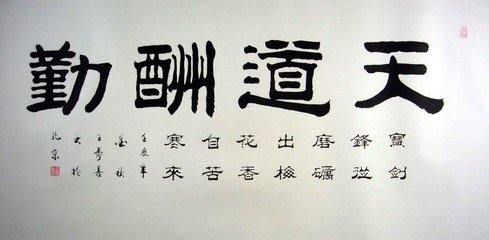 天道酬勤
寶劍
鋒從
磨礪
出梅
花香
自苦
寒來
壬辰年
秋
書於
北京